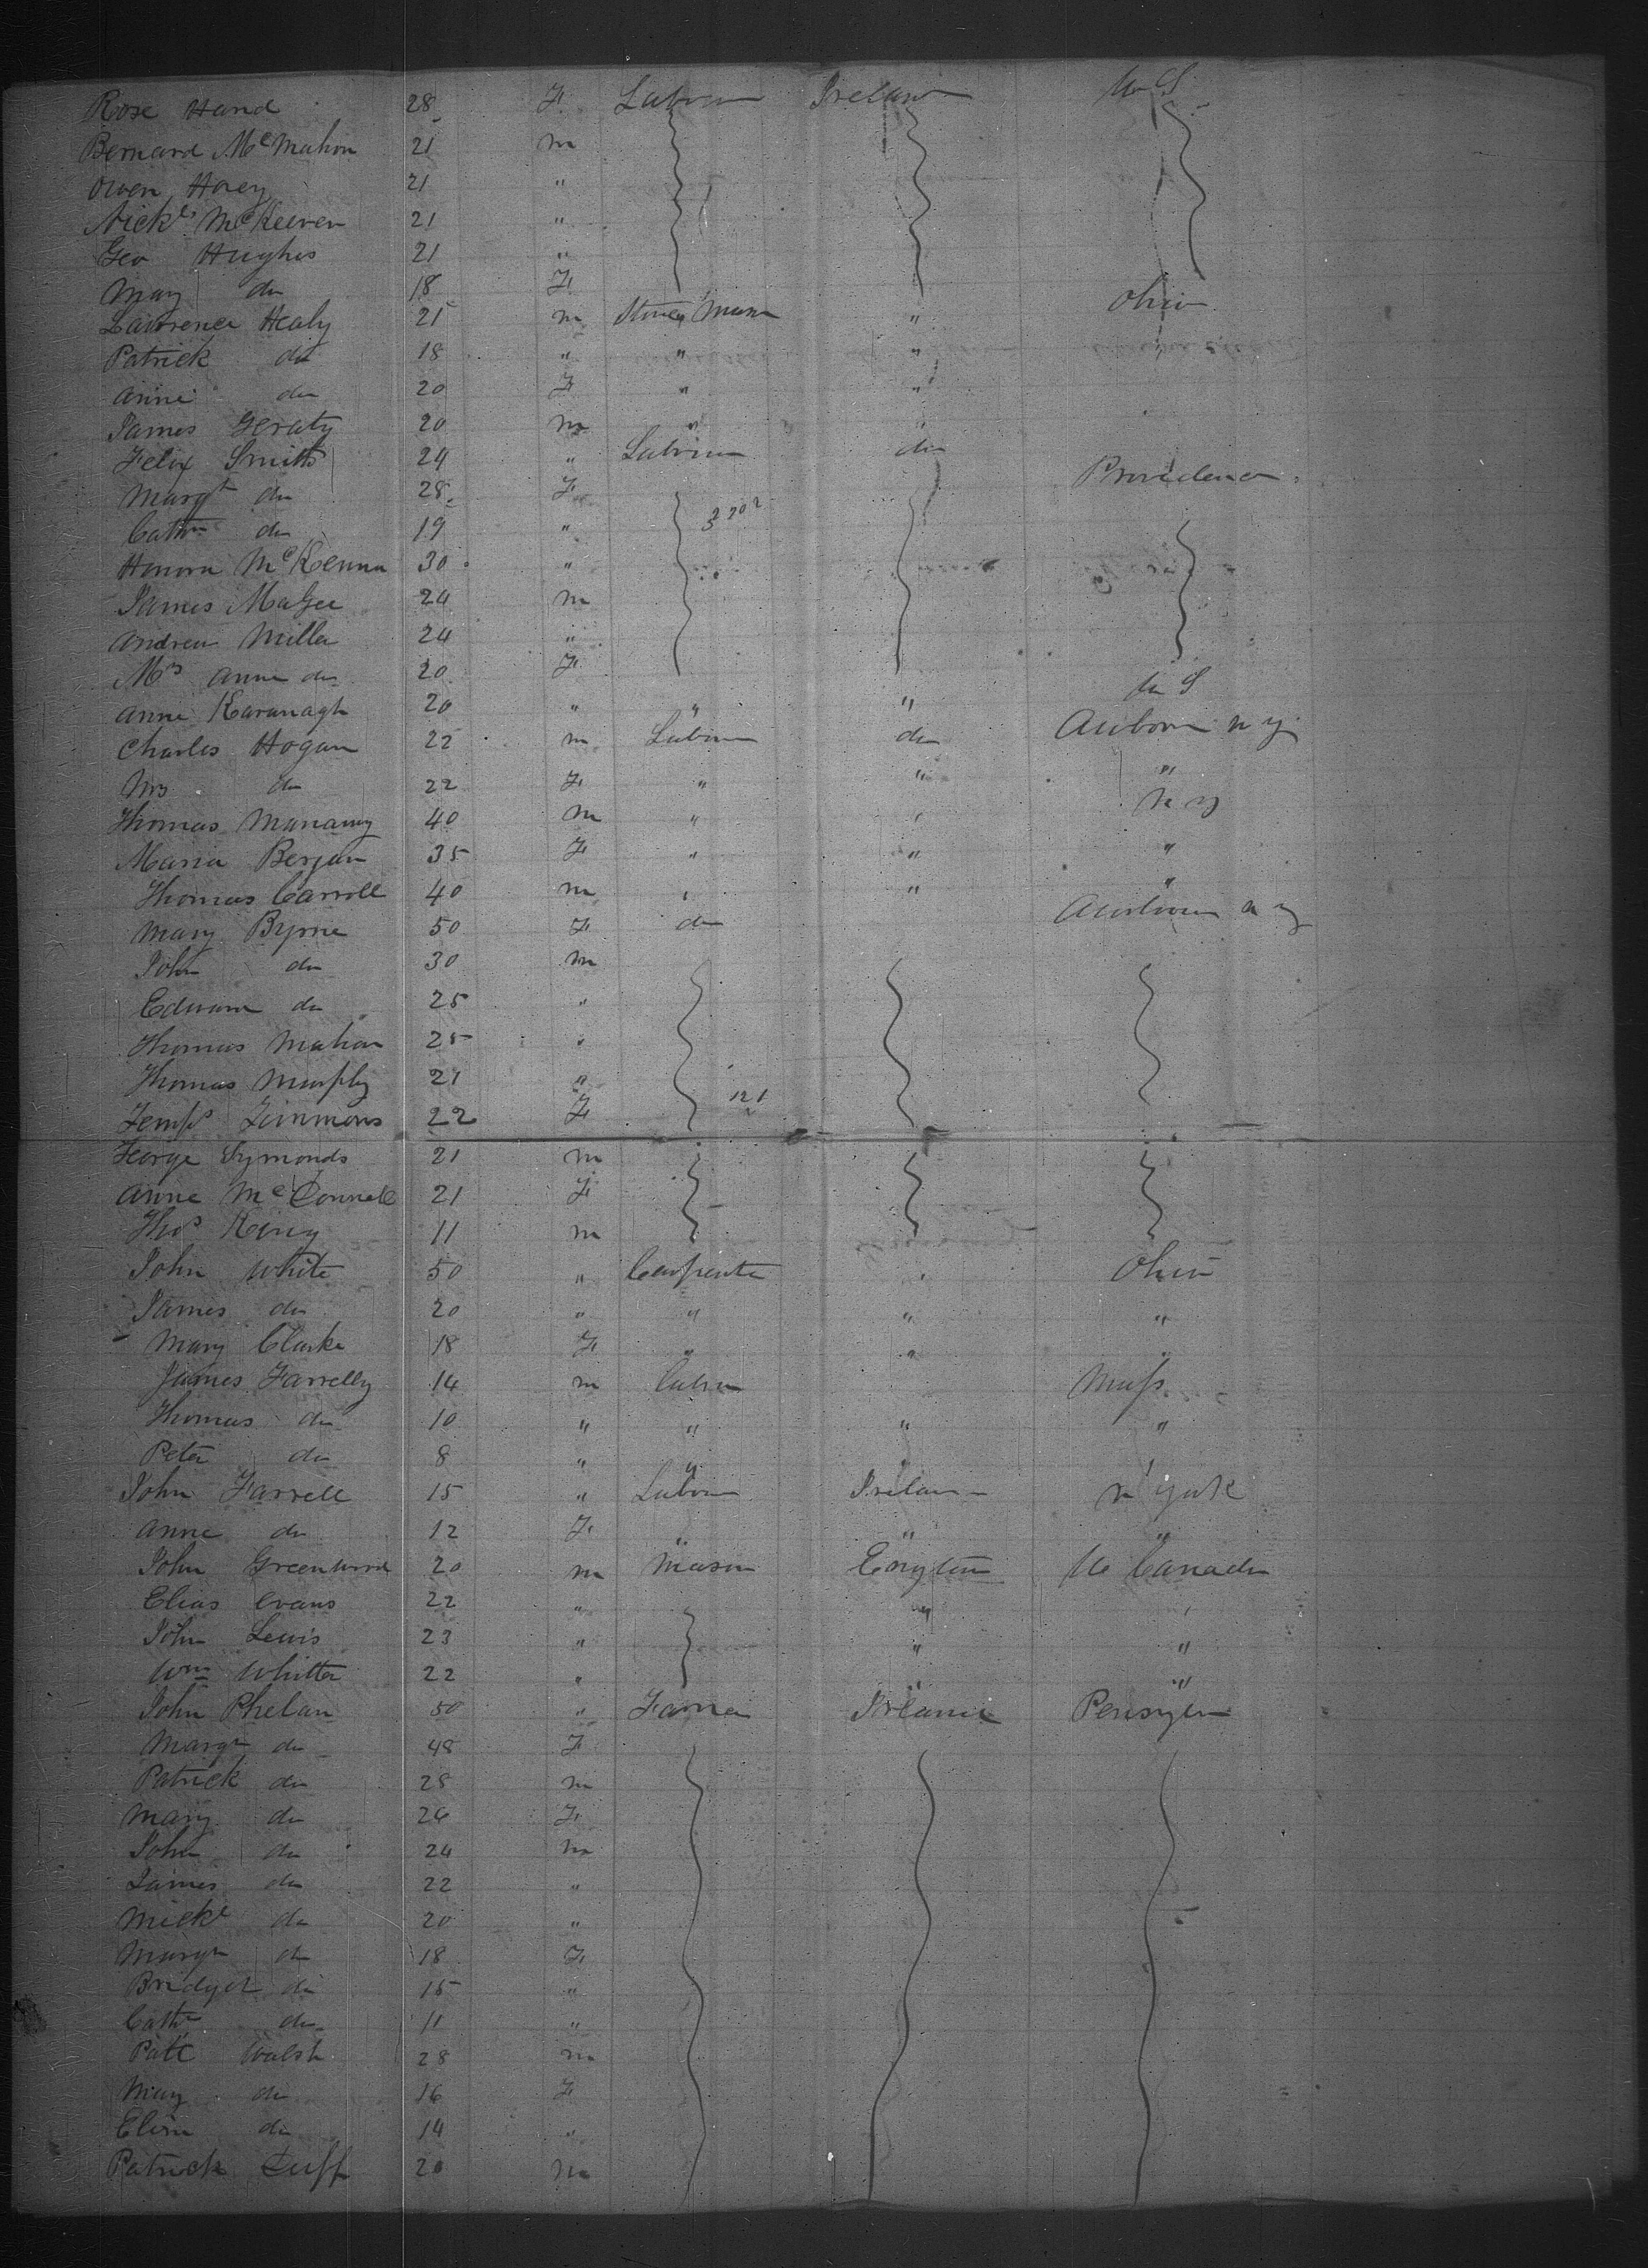 Rose Hand 28 F Labour Ireland U S
Bernard McMahon 21 m
Owen Hoey 21 "
Nichs McKeever 21 "
Geo Hughes 21 "
Mary do 18 F
Lawrence Healy 21 m Stone Mason " Ohio
Patrick do 18 " " "
Anne do 20 F " "
James Geraty 20 m " "
Felix Smith 24 " Labour do
Margt do 28 F Providence
Cathn do 19 "
Honora McKenna 30 "
James MaGee 24 m
Andrew Miller 24 "
Mrs Anne do 20 F
Anne Kavanagh 20 " " " U S
Charles Hogan 22 m Labour do Auborn N Y
Mrs do 22 F " " "
Thomas 40 m " " N Y
Maria Bergan 35 F " " "
Thomas Carroll 40 m " " "
Mary Byrne 50 F do Auborn N Y
John do 30 m
Edward do 25 "
Thomas Mahon 25 "
Thomas Murphy 21 "
121
22 F
George Symonds 21 m
Anne McConnell 21 F
Thos King 11 m
John White 50 " Carpenter " Ohio
James do 20 " " " "
Mary Clarke 18 F " " "
James Farrelly 14 m Labour Mass
Thomas do 10 " " " "
Peter do 8 " " " "
John Farrell 15 " Labour Ireland N York
Anne do 12 F " " "
John Greenwood 20 m Mason England U Canada
Elias Evans 22 " " "
John Lewis 23 " " "
Wm Whitter 22 " " "
John Phelan 50 " Farmer Ireland Pensyln
Margt do 48 F
Patrick do 28 m
Mary do 26 F
John do 24 m
James do 22 "
Michl do 20 "
Margt do 18 F
Bridget do 15 "
Cathe do 11 "
Patk Walsh 28 m
Mary do 16 F
Eliza do 14 "
Patrick Cuff 20 m